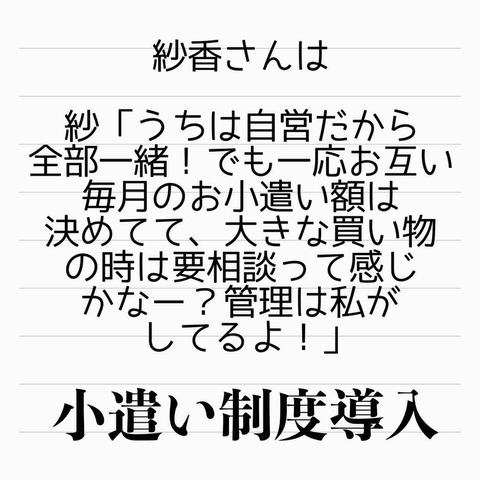 紗香さんは
紗「うちは自営だから
全部一緒！でも一応お互い
毎月のお小遣い額は
決めてて、大きな買い物
の時は要相談って感じ
かなー？管理は私が
してるよ！」
小遣い制度導入